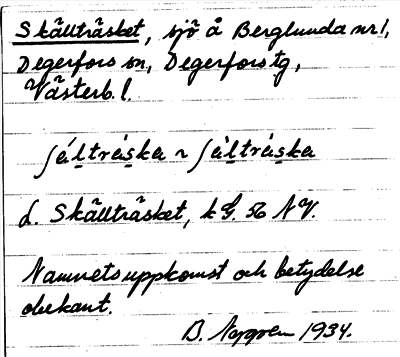 Skällträsket, sjö å Berglunda nr 1,
Degerfors sn, Degerfors tg,
Västerb. l.
ʃä́l̥tràska ~ ʃä̀l̥tráska
d. Skällträsket, k G. 56 NV.
Namnets uppkomst och betydelse
obekant.
B. Nygren 1934.